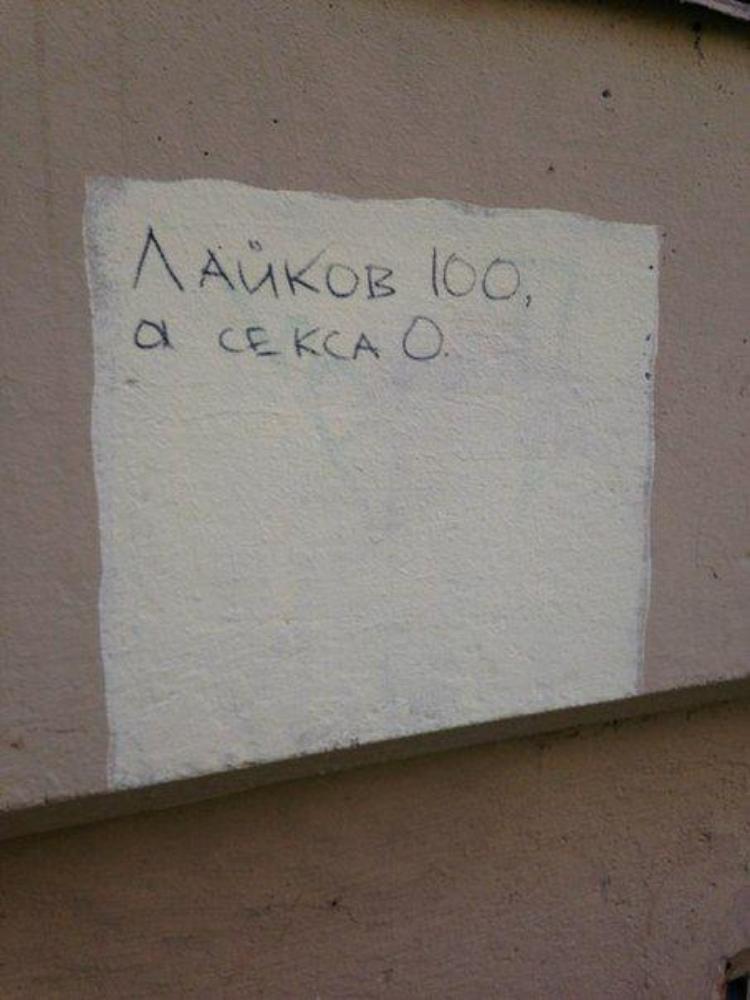 Лайков 100,
а секса 0.